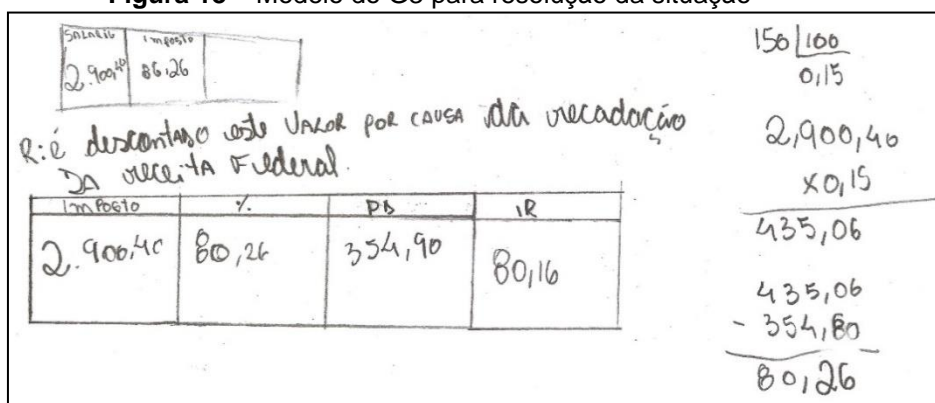 Figura 18 – Modelo do G3 para resolução da situação
SALARIO Imposto
2.900,40 86,26
R: é descontado este VALOR POR CAUSA da recadoção
DA receitA Federal.
ImPOSTO % PD IR
2.900,40 80,26 354,90 80,16
150 100
0,15
2,900,40
x0,15
435,06
435,06
- 354,80
80,26